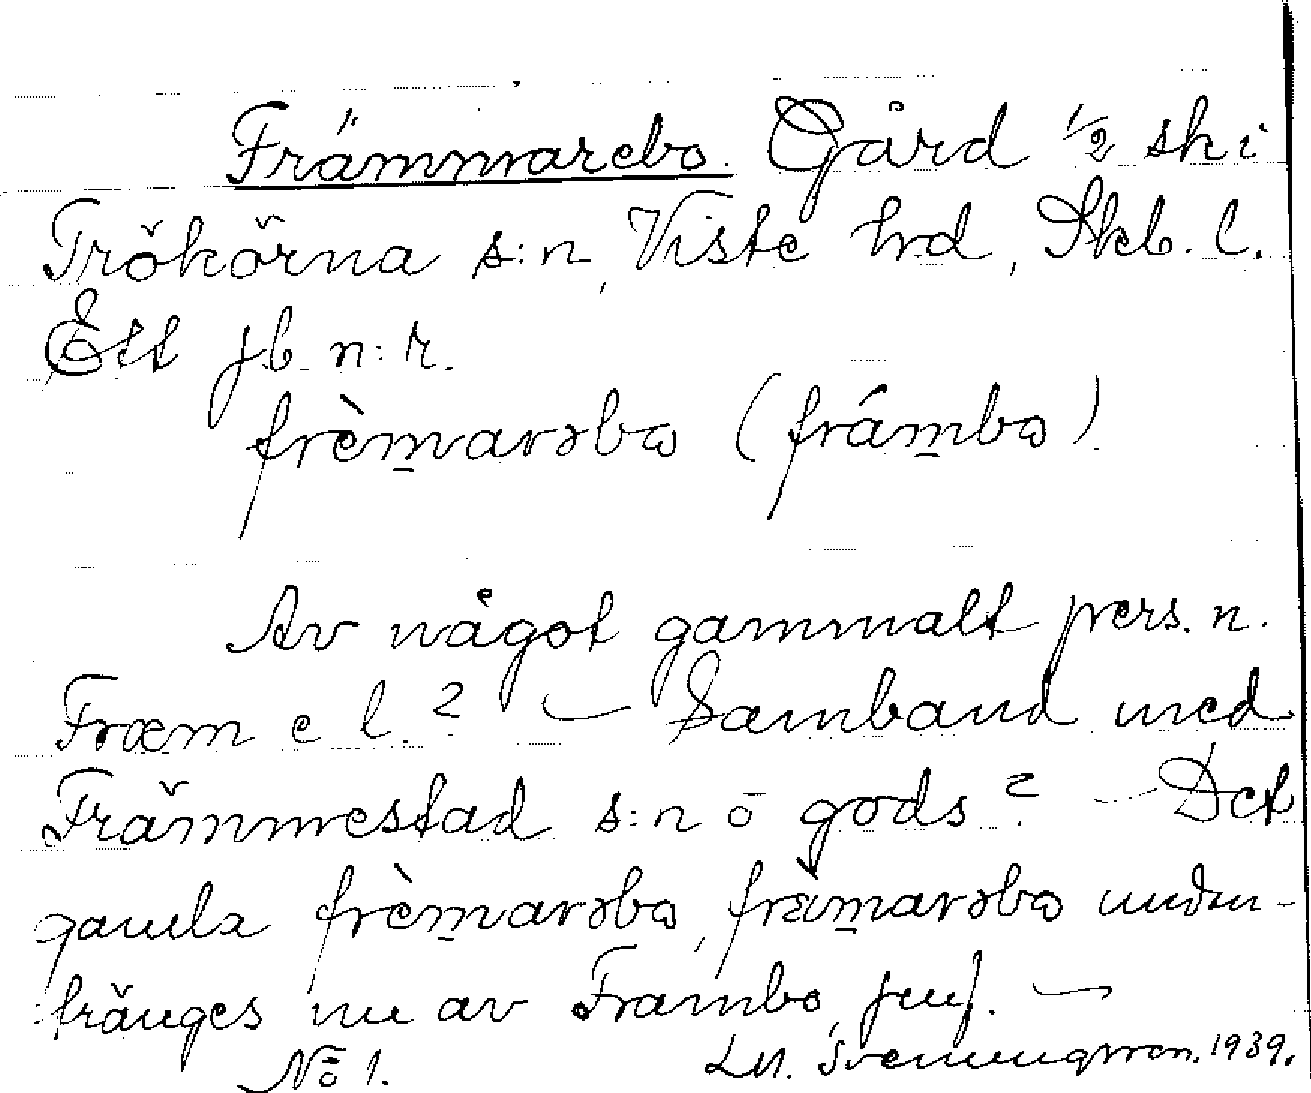 Främmarebo. Gård 1/2 sk i
Trökörna s:n, Viste hrd, Skb. l.
Ett jb. n:r.
frèm̲arəbω (frám̲bω).
Av något gammalt pers. n.
Fræm e l.? — Samband med
Främmestad s:n o gods? — Det
gamla frèm̲arəbω, fræ̀m̲arəbω undan-
tränges nu av Frambo, jmf. —
No 1.
Svenungsson. 1939.